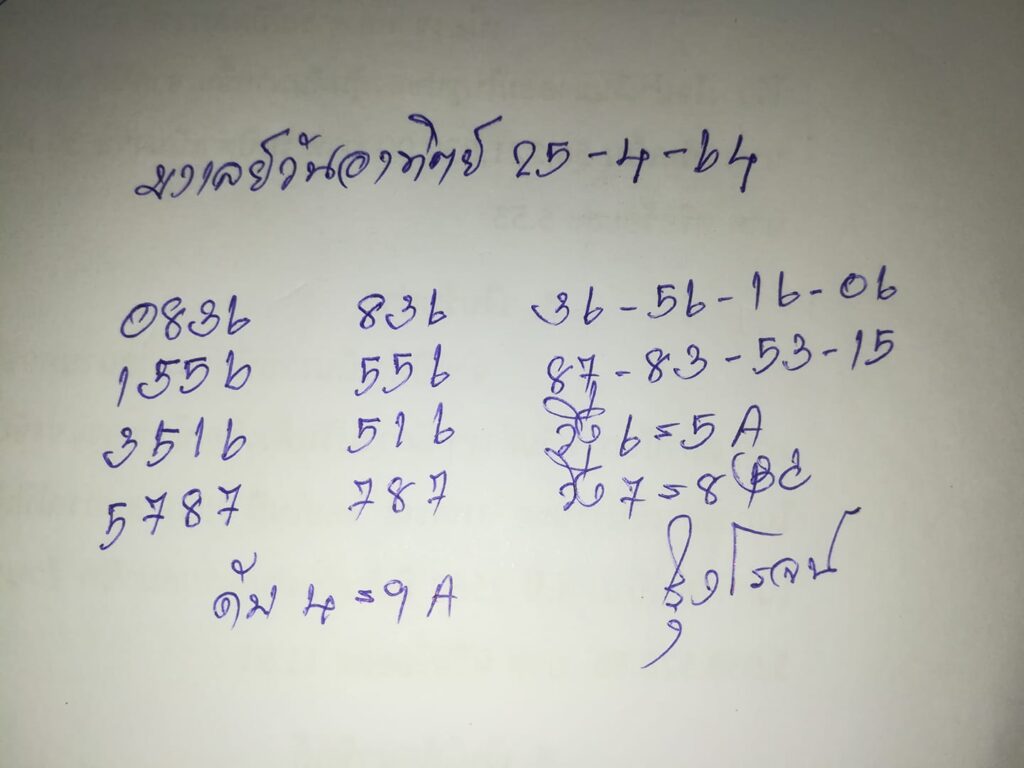 มาเลย์วันอาทิตย์ 25-4-64
0836 836 36-56-16-06
1556 556 87-83-53-15
3516 516 วิ่ง 6=5 A
5787 787 วิ่ง 7=8
ดับ 4=9 A
รุ่งโรจน์